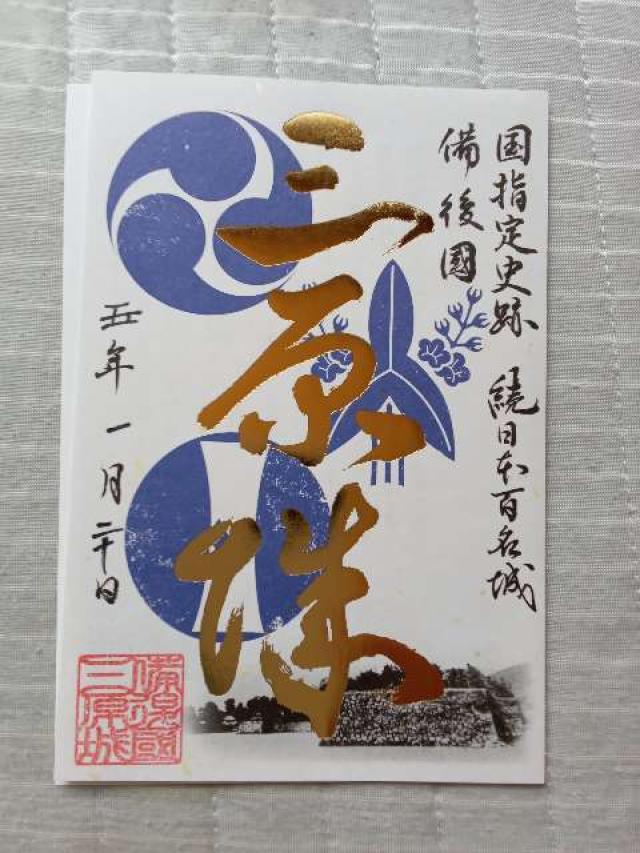 国指定史跡 続日本百名城
備後國
三原城
五年 一月二十日
備後國
三原城